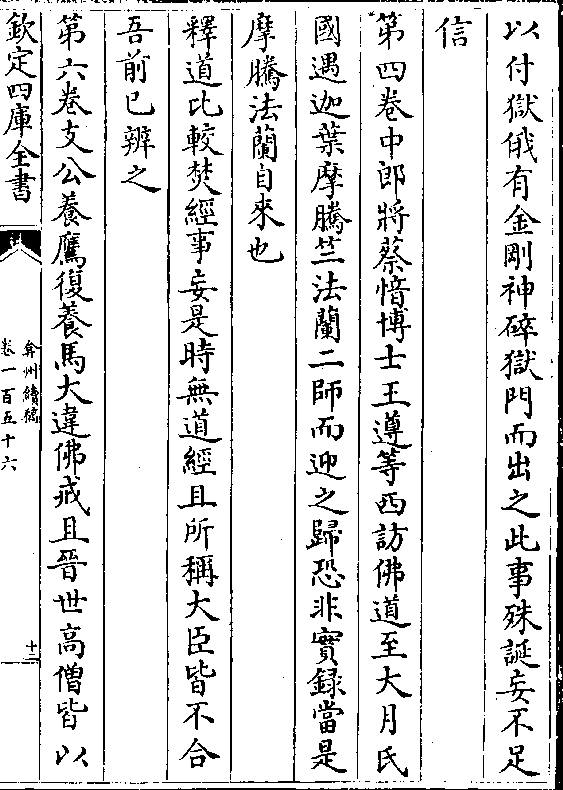 以付獄俄有金剛神碎獄門而出之此事殊誕妄不足
信
第四卷中郎將蔡愔博士王遵等西訪佛道至大月氏
國遇迦葉摩騰竺法蘭二師而迎之歸恐非實錄當是
摩騰法蘭自來也
釋道比較焚經事妄是時無道經且所稱大臣皆不合
吾前已辨之
第六卷支公養鷹復養馬大違佛戒且晉世高僧皆以
欽定四庫全書
弇州續稿
卷一百五十六
十二